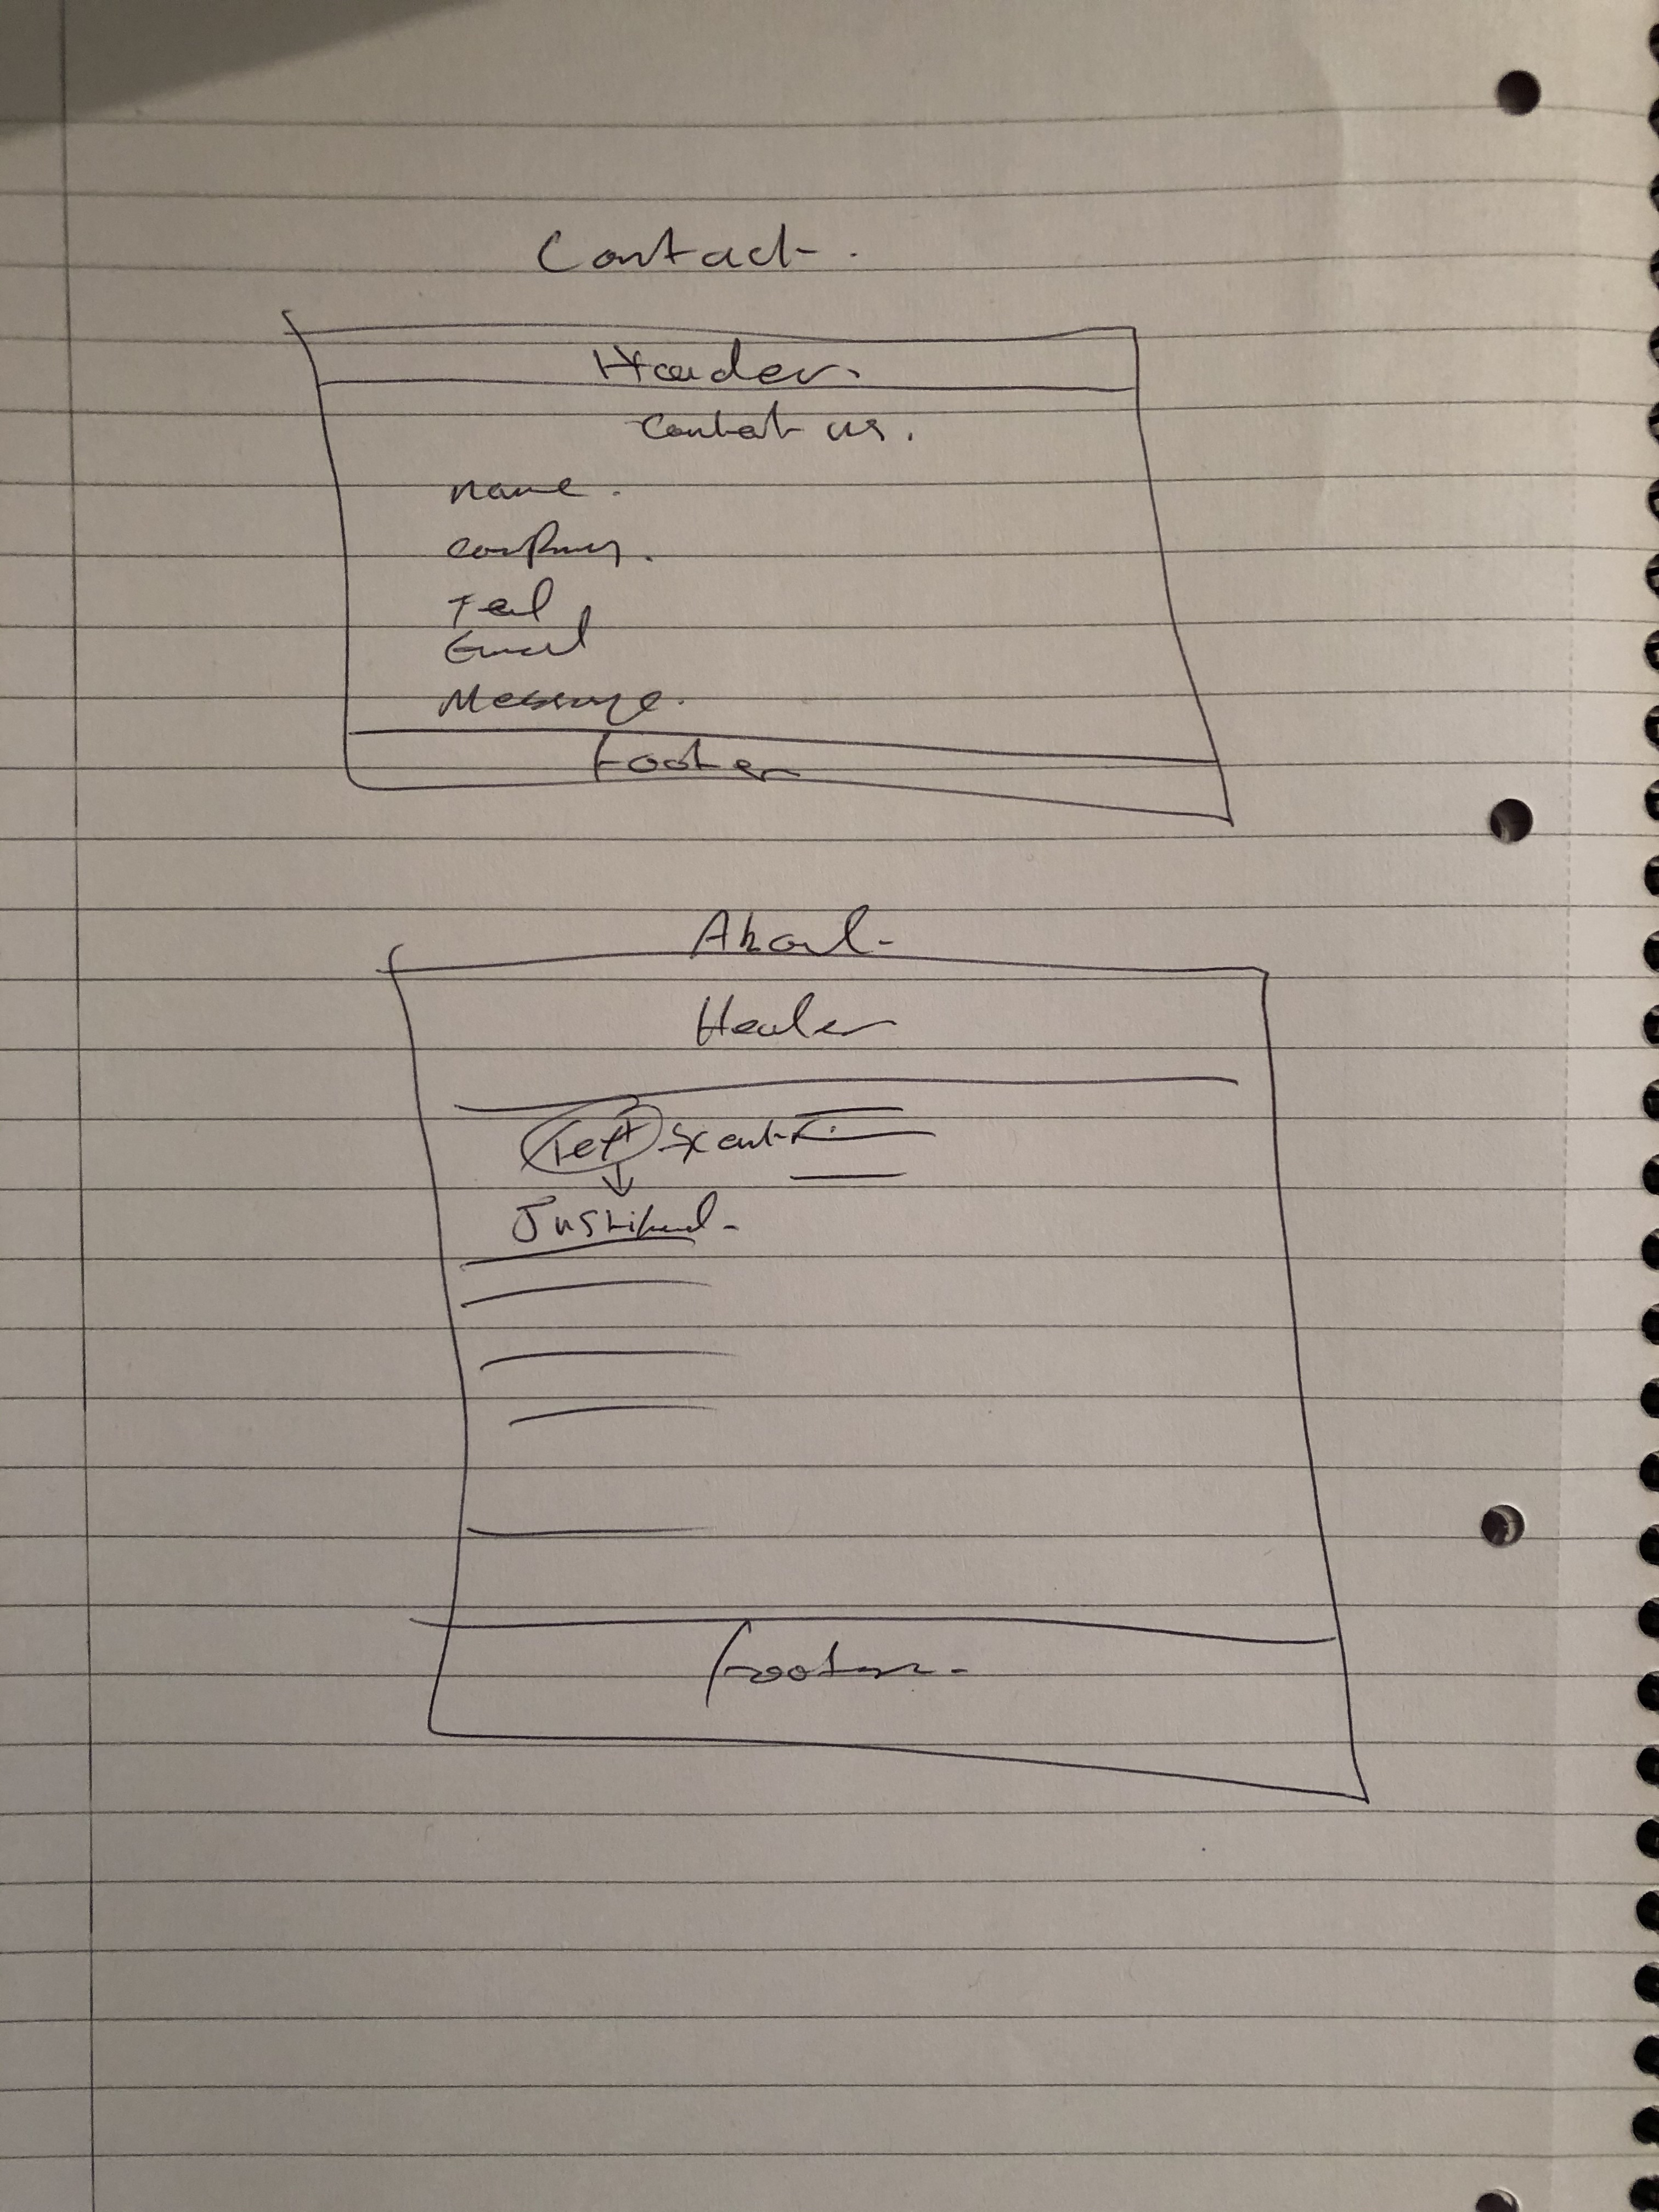 Contact.
Header.
Contact us.
name.
company.
Tel
Email
Message.
Footer
About
Header
Text
Justified.
Footer.